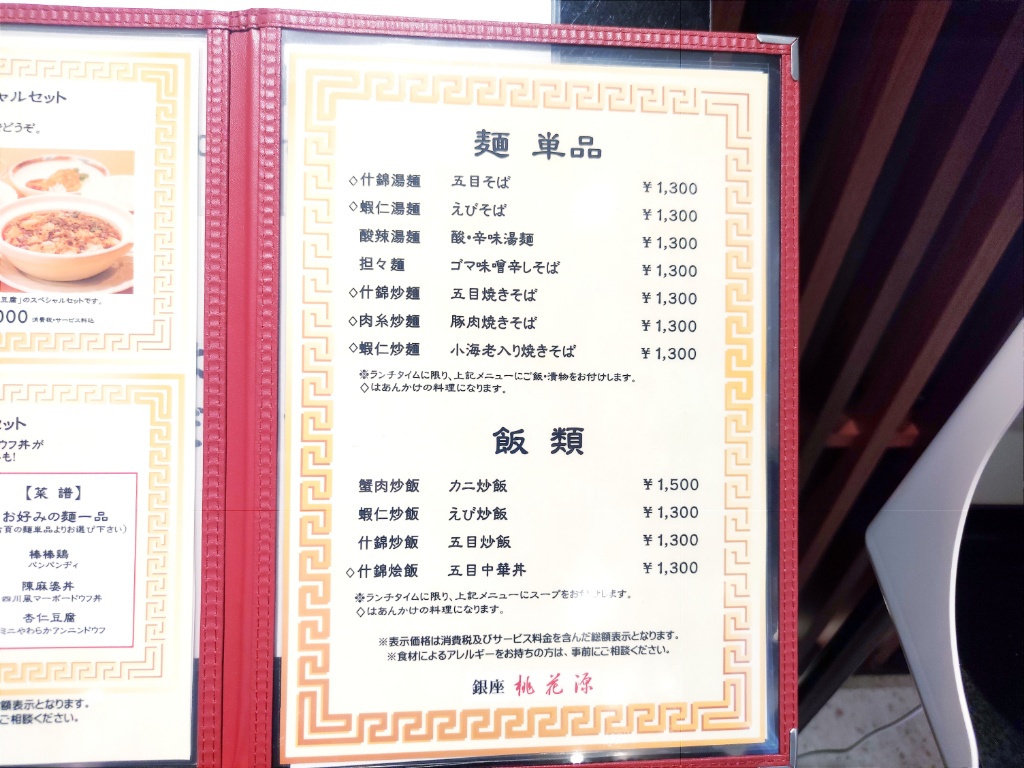 ャルセット
どうぞ。
豆腐」のスペシャルセットです。
000 消費税・サービス料込
セット
ウフ丼が
も!
【菜 譜】
お好みの麺一品
頁の麺単品よりお選び下さい)
棒棒鶏
バンバンディ
陳麻婆丼
四川風マーボードウフ丼
杏仁豆腐
ミニやわらかアンニンドウフ
額表示となります。
ご相談ください。
麺 単品
◇什錦湯麺 五目そば ¥1,300
◇蝦仁湯麺 えびそば ¥1,300
酸辣湯麺 酸・辛味湯麺 ¥1,300
担々麺 ゴマ味噌辛しそば ¥1,300
◇什錦炒麺 五目焼きそば ¥1,300
◇肉糸炒麺 豚肉焼きそば ¥1,300
◇蝦仁炒麺 小海老入り焼きそば ¥1,300
※ランチタイムに限り、上記メニューにご飯・漬物をお付けします。
◇はあんかけの料理になります。
飯 類
蟹肉炒飯 カニ炒飯 ¥1,500
蝦仁炒飯 えび炒飯 ¥1,300
什錦炒飯 五目炒飯 ¥1,300
◇什錦烩飯 五目中華丼 ¥1,300
※ランチタイムに限り、上記メニューにスープをお付けします。
◇はあんかけの料理になります。
※表示価格は消費税及びサービス料金を含んだ総額表示となります。
※食材によるアレルギーをお持ちの方は、事前にご相談ください。
銀座 桃花源